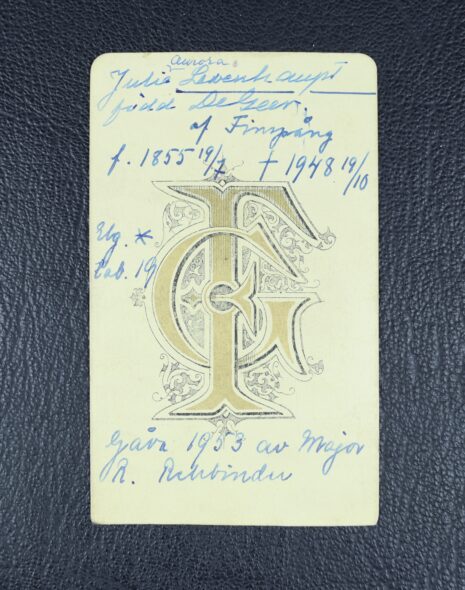 Aurora
Julia Lewenhaupt
född DeGeer.
af Finspång
f. 1855 19/7 † 1948 19/10
Elg. *
tab. 19
FG
Gåva 1953 av Major
R. Rehbinder